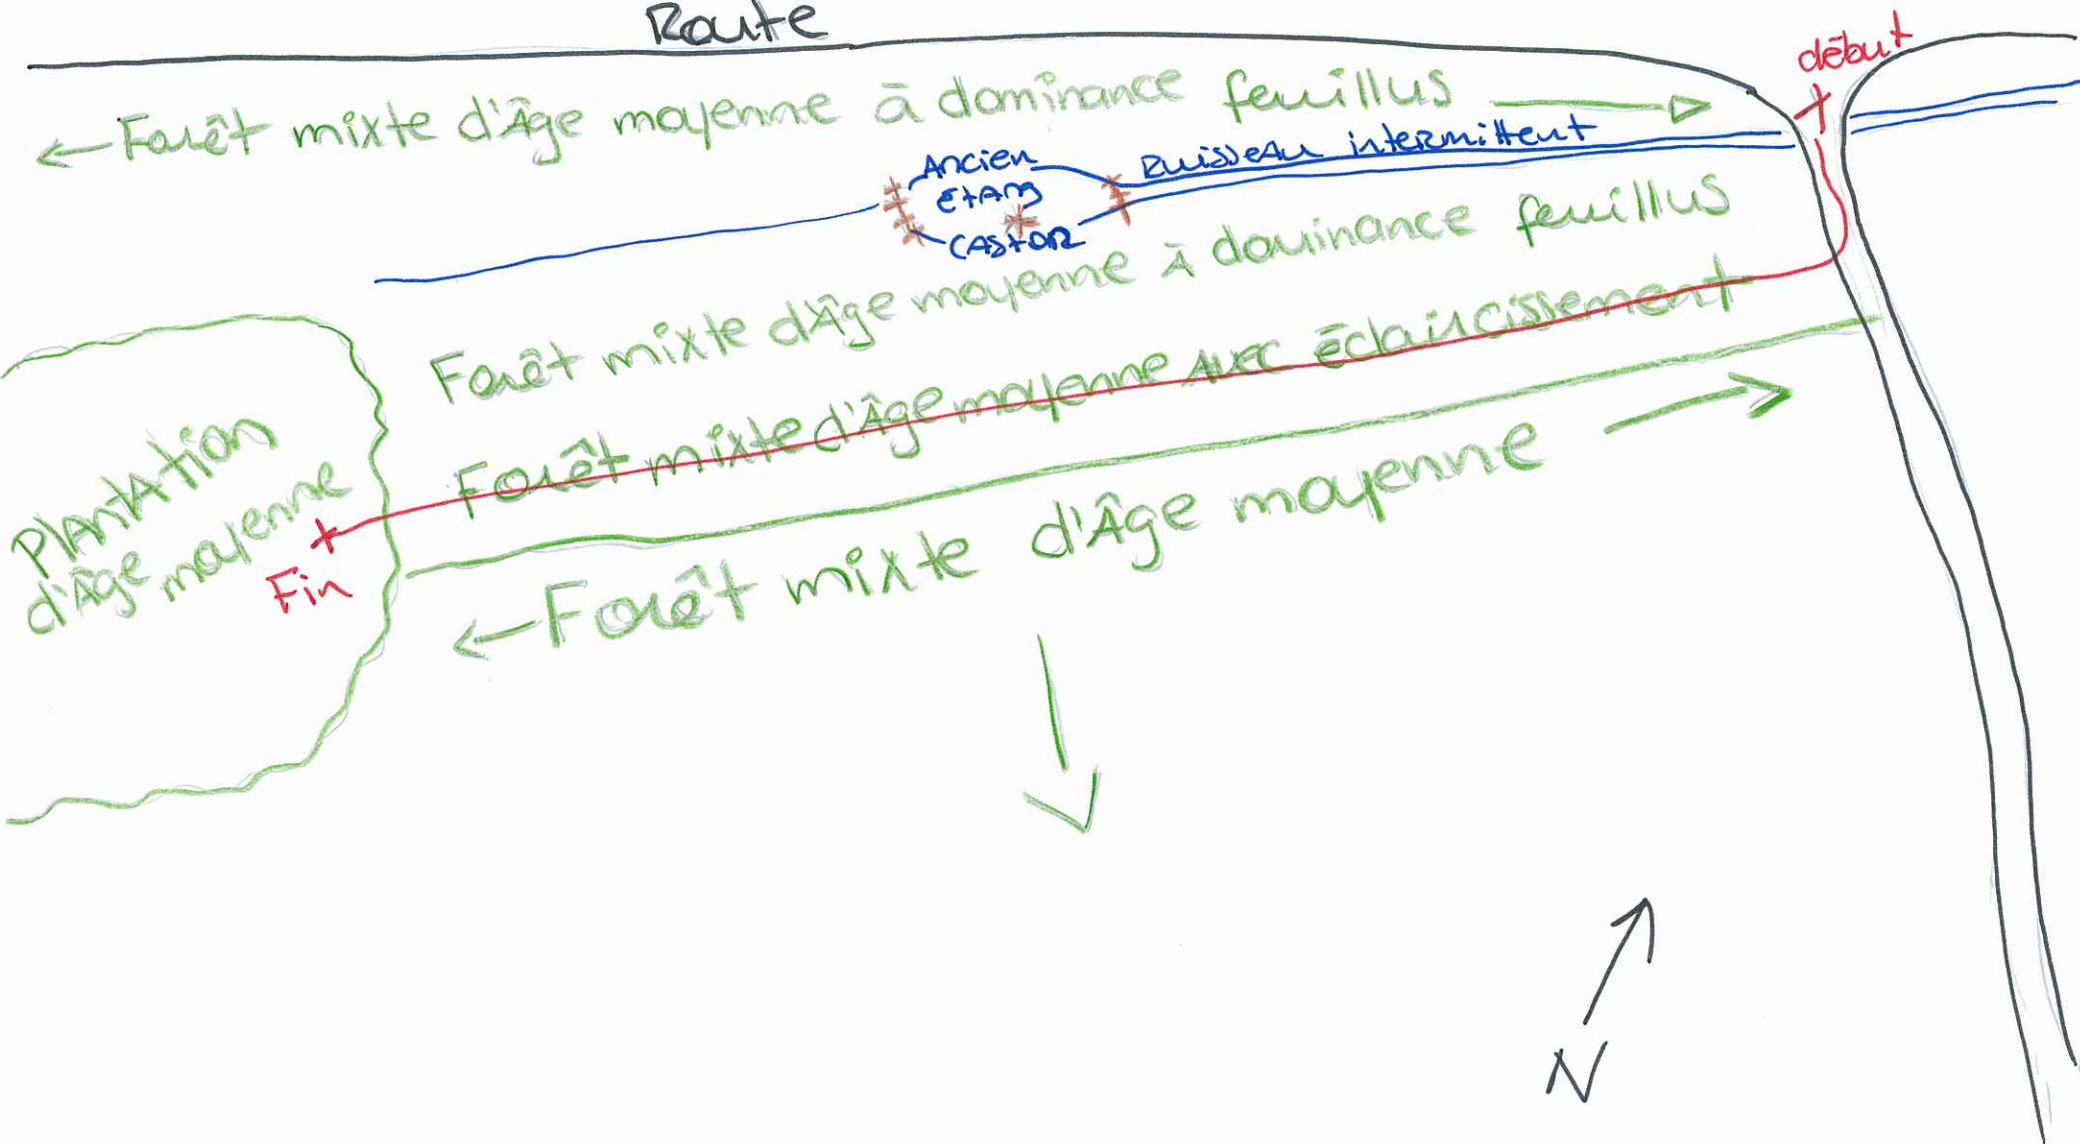 Route
début
Forêt mixte d'Âge moyenne à dominance feuillus
Ruisseau intermittent
Ancien
Etang
CASTOR
Forêt mixte d'Âge moyenne à dominance feuillus
Forêt mixte d'Âge moyenne AVEC éclaircissement
Plantation
d'Âge moyenne
Fin
Forêt mixte d'Âge moyenne
N